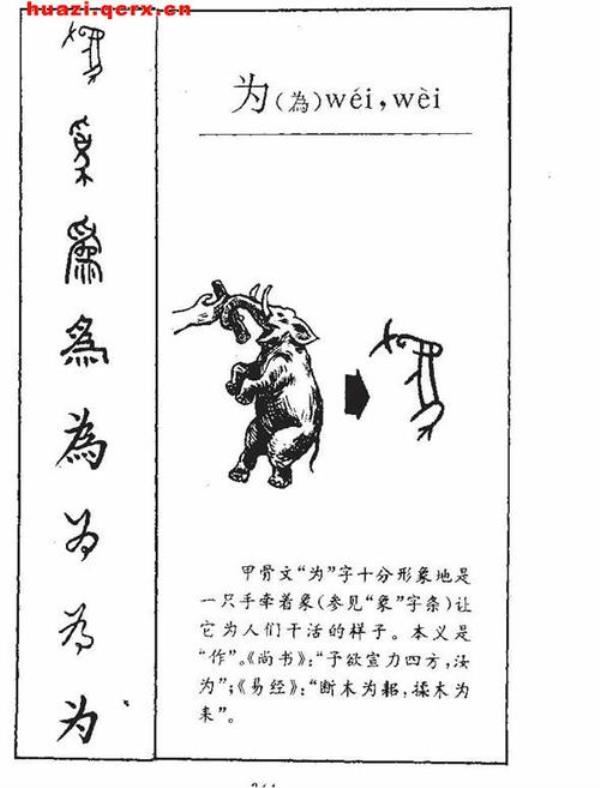 huazi.qcrx.cn
为(為)wéi,wèi
為
为
甲骨文“为”字十分形象地是
一只手牵着象(参见“象”字条)让
它为人们干活的样子。本义是
“作”。《尚书》:“予欲宣力四方,汝
为”;《易经》:“断木为耜,揉木为
耒”。